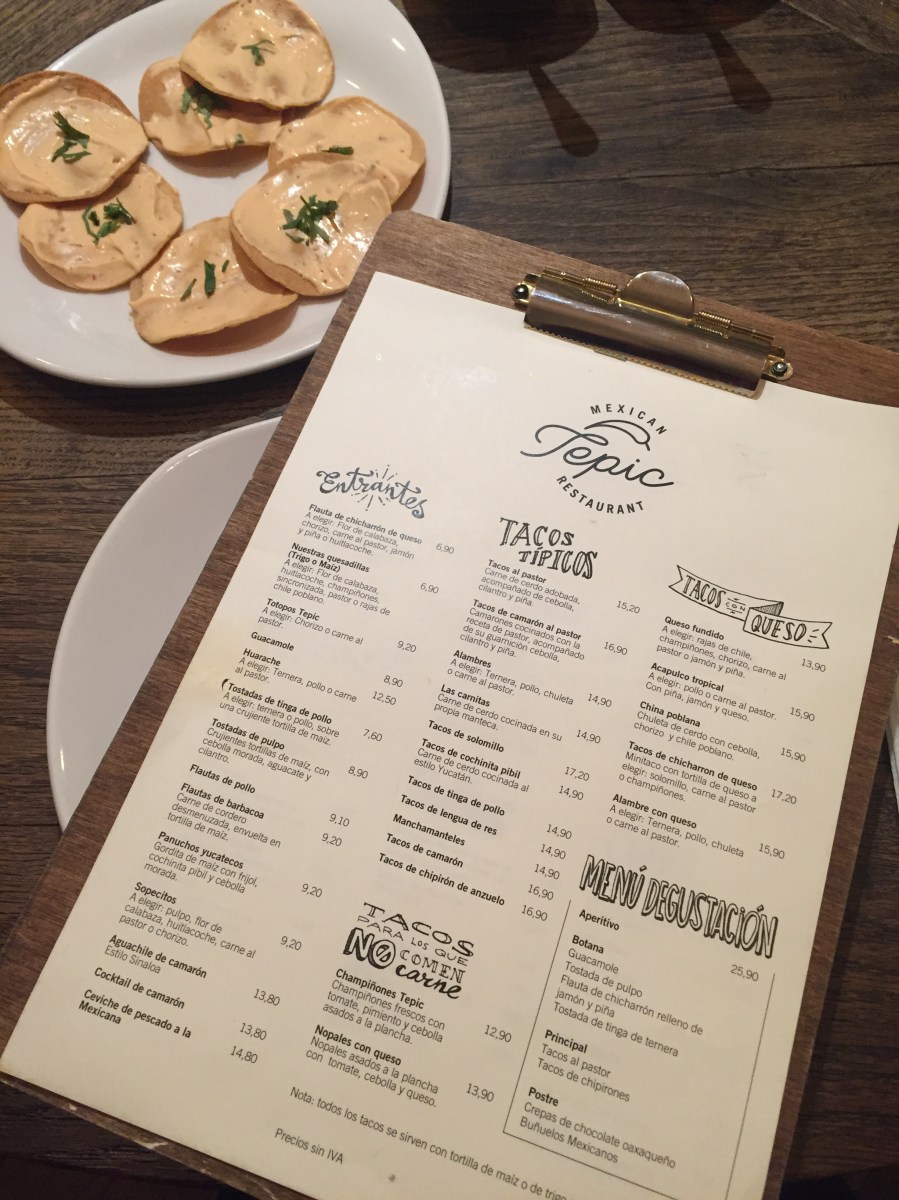 MEXICAN
Tepic
RESTAURANT
Entrantes
Flauta de chicharrón de queso
A elegir: Flor de calabaza,
chorizo, carne al pastor, jamón
y piña o huitlacoche. 6,90
Nuestras quesadillas
(Trigo o Maíz)
A elegir: Flor de calabaza,
huitlacoche, champiñones,
sincronizada, pastor o rajas de
chile poblano. 6,90
Totopos Tepic
A elegir: Chorizo o carne al
pastor. 9,20
Guacamole 8,90
Huarache
A elegir: Ternera, pollo o carne
al pastor. 12,50
Tostadas de tinga de pollo
A elegir: ternera o pollo, sobre
una crujiente tortilla de maíz. 7,60
Tostadas de pulpo
Crujientes tortillas de maíz, con
cebolla morada, aguacate y
cilantro. 8,90
Flautas de pollo 9,10
Flautas de barbacoa
Carne de cordero
desmenuzada, envuelta en
tortilla de maíz. 9,20
Panuchos yucatecos
Gordita de maíz con frijol,
cochinita pibil y cebolla
morada. 9,20
Sopecitos
A elegir: pulpo, flor de
calabaza, huitlacoche, carne al
pastor o chorizo. 9,20
Aguachile de camarón
Estilo Sinaloa 13,80
Cocktail de camarón 13,80
Ceviche de pescado a la
Mexicana 14,80
TACOS
TÍPICOS
Tacos al pastor
Carne de cerdo adobada,
acompañado de cebolla,
cilantro y piña. 15,20
Tacos de camarón al pastor
Camarones cocinados con la
receta de pastor, acompañado
de su guarnición cebolla,
cilantro y piña. 16,90
Alambres
A elegir: Ternera, pollo, chuleta
o carne al pastor. 14,90
Las carnitas
Carne de cerdo cocinada en su
propia manteca. 14,90
Tacos de solomillo 17,20
Tacos de cochinita pibil
Carne de cerdo cocinada al
estilo Yucatán. 14,90
Tacos de tinga de pollo 14,90
Tacos de lengua de res 14,90
Manchamanteles 14,90
Tacos de camarón 16,90
Tacos de chipirón de anzuelo 16,90
TACOS
PARA LOS QUE
NO COMEN
carne
Champiñones Tepic
Champiñones frescos con
tomate, pimiento y cebolla
asados a la plancha. 12,90
Nopales con queso
Nopales asados a la plancha
con tomate, cebolla y queso. 13,90
TACOS CON
QUESO
Queso fundido
A elegir: rajas de chile,
champiñones, chorizo, carne al
pastor o jamón y piña. 13,90
Acapulco tropical
A elegir: pollo o carne al pastor.
Con piña, jamón y queso. 15,90
China poblana
Chuleta de cerdo con cebolla,
chorizo y chile poblano. 15,90
Tacos de chicharron de queso
Minitaco con tortilla de queso a
elegir: solomillo, carne al pastor
o champiñones. 17,20
Alambre con queso
A elegir: Ternera, pollo, chuleta
o carne al pastor. 15,90
MENÚ DEGUSTACIÓN
25,90
Aperitivo
Botana
Guacamole
Tostada de pulpo
Flauta de chicharrón relleno de
jamón y piña
Tostada de tinga de ternera
Principal
Tacos al pastor
Tacos de chipirones
Postre
Crepas de chocolate oaxaqueño
Buñuelos Mexicanos
Nota: todos los tacos se sirven con tortilla de maíz o de trigo
Precios sin IVA